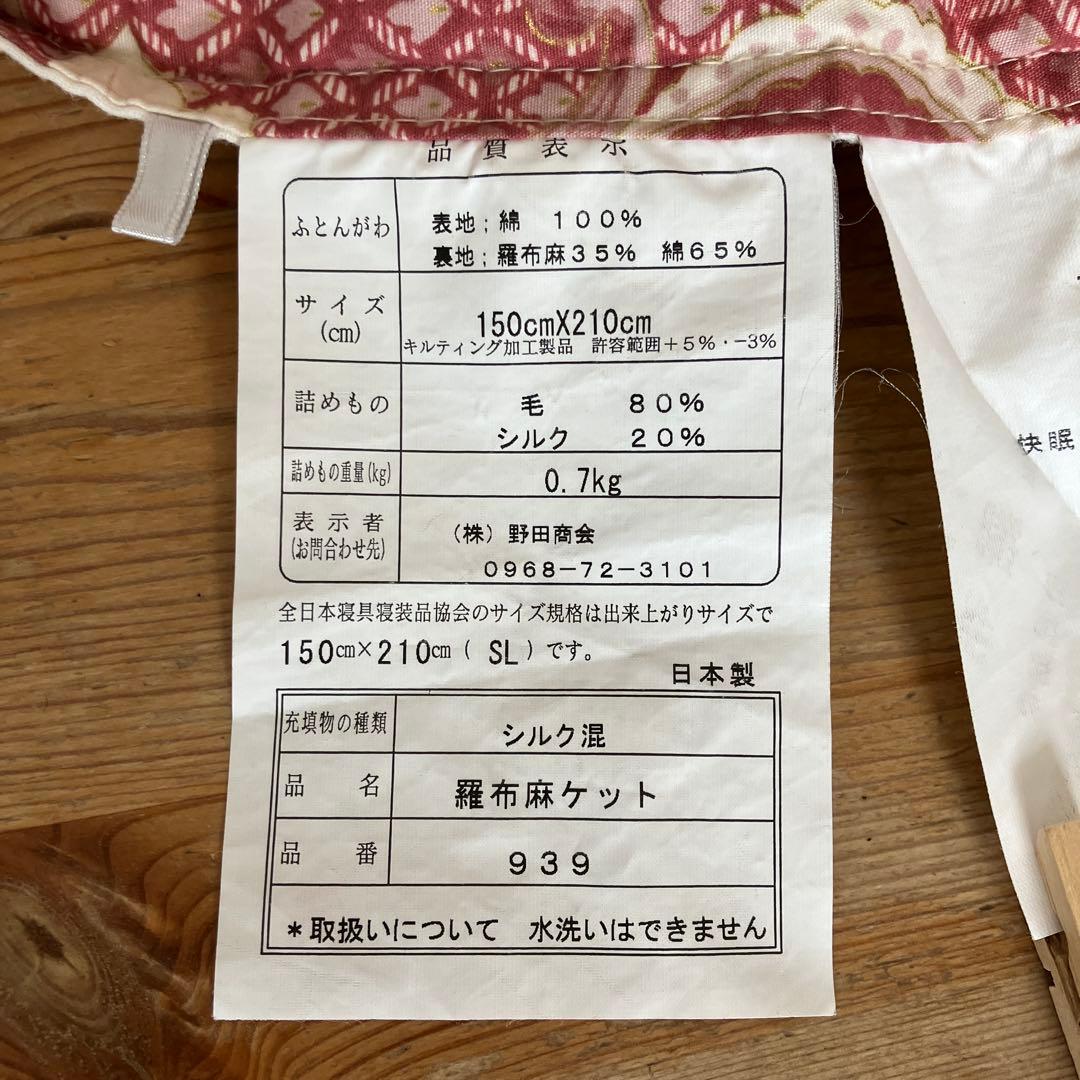 品質表示
ふとんがわ
表地；綿　１００％
裏地；羅布麻３５％　綿６５％
サイズ
(cm)
150cmX210cm
キルティング加工製品　許容範囲＋５％・−3％
詰めもの
毛　８０％
シルク　２０％
詰めもの重量(kg)
0.7kg
表示者
(お問合わせ先)
（株）野田商会
０９６８−７２−３１０１
全日本寝具寝装品協会のサイズ規格は出来上がりサイズで
150㎝×210㎝（ SL ）です。
日本製
充填物の種類
シルク混
品名
羅布麻ケット
品番
９３９
＊取扱いについて　水洗いはできません
快眠